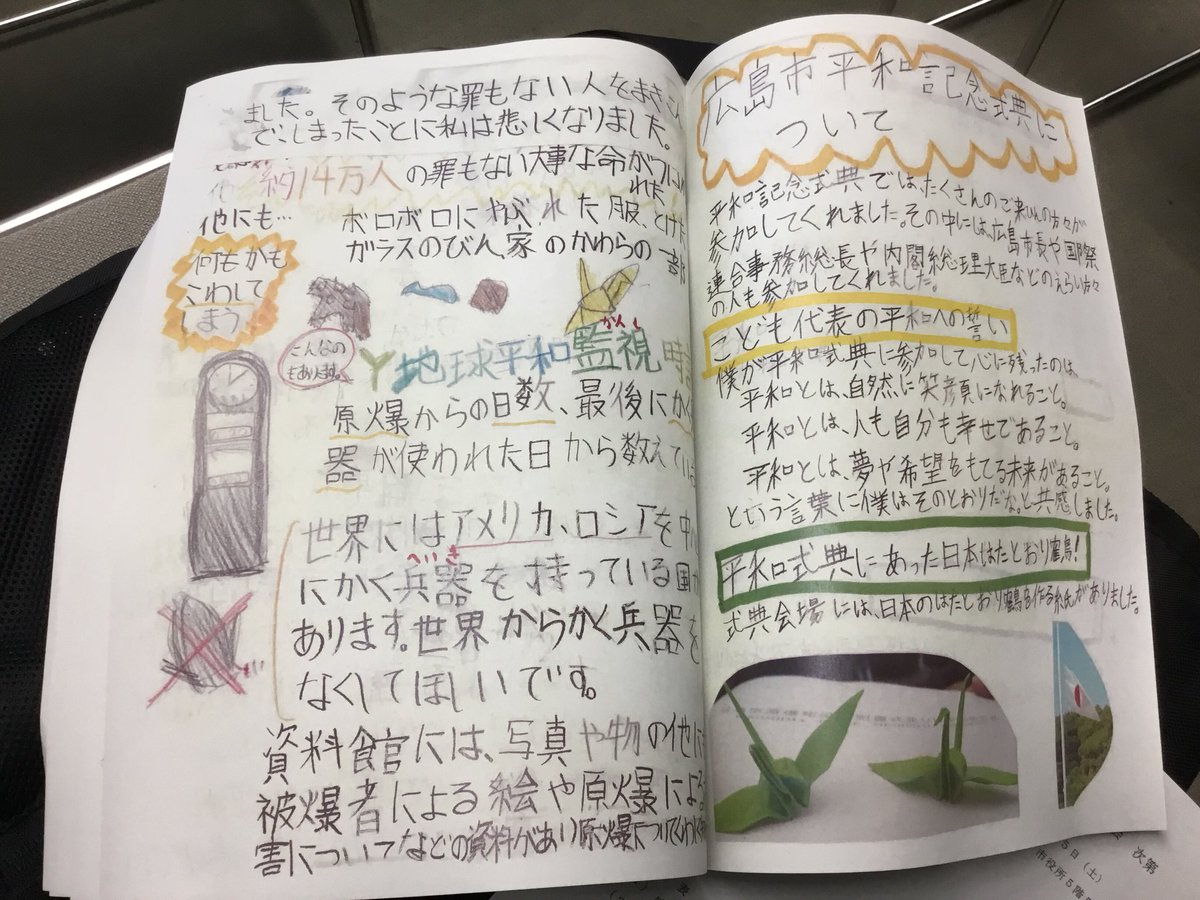 ました。そのような罪もない人をまきこん
でしまったことに私は悲しくなりました。
約14万人の罪もない大事な命がうばわ
れた
他にも…
ボロボロにやぶれた服、とけた
ガラスのびん、家のかわらの一部
何もかも
こわして
しまう
こんなの
もあります。
地球平和監視時計
かんし
原爆からの日数、最後にかく
器が使われた日から数えている
世界にはアメリカ、ロシアを中心
にかく兵器を持っている国が
へいき
あります。世界からかく兵器を
なくしてほしいです。
資料食官には、写真や物の他に
被爆者による絵や原爆による
害についてなどの資料があり原爆について
広島市平和記念式典に
ついて
平和記念式典では、たくさんのご来ひんの方々が
参加してくれました。その中には、広島市長や国際祭
連合事務総長や内閣総理大臣などのえらい方々
の人も参加してくれました。
こども代表の平和への誓い
僕が平和式典に参加して心に残ったのは、
平和とは、自然に笑顔になれること。
平和とは、人も自分も幸せであること。
平和とは、夢や希望をもてる未来があること。
という言葉に僕はそのとおりだな。と共感しました。
平和式典にあった日本はたとおり鶴!
式典会場には、日本のはたとおり鶴を作る紙がありました。
次第
5日(土)
市役所5階